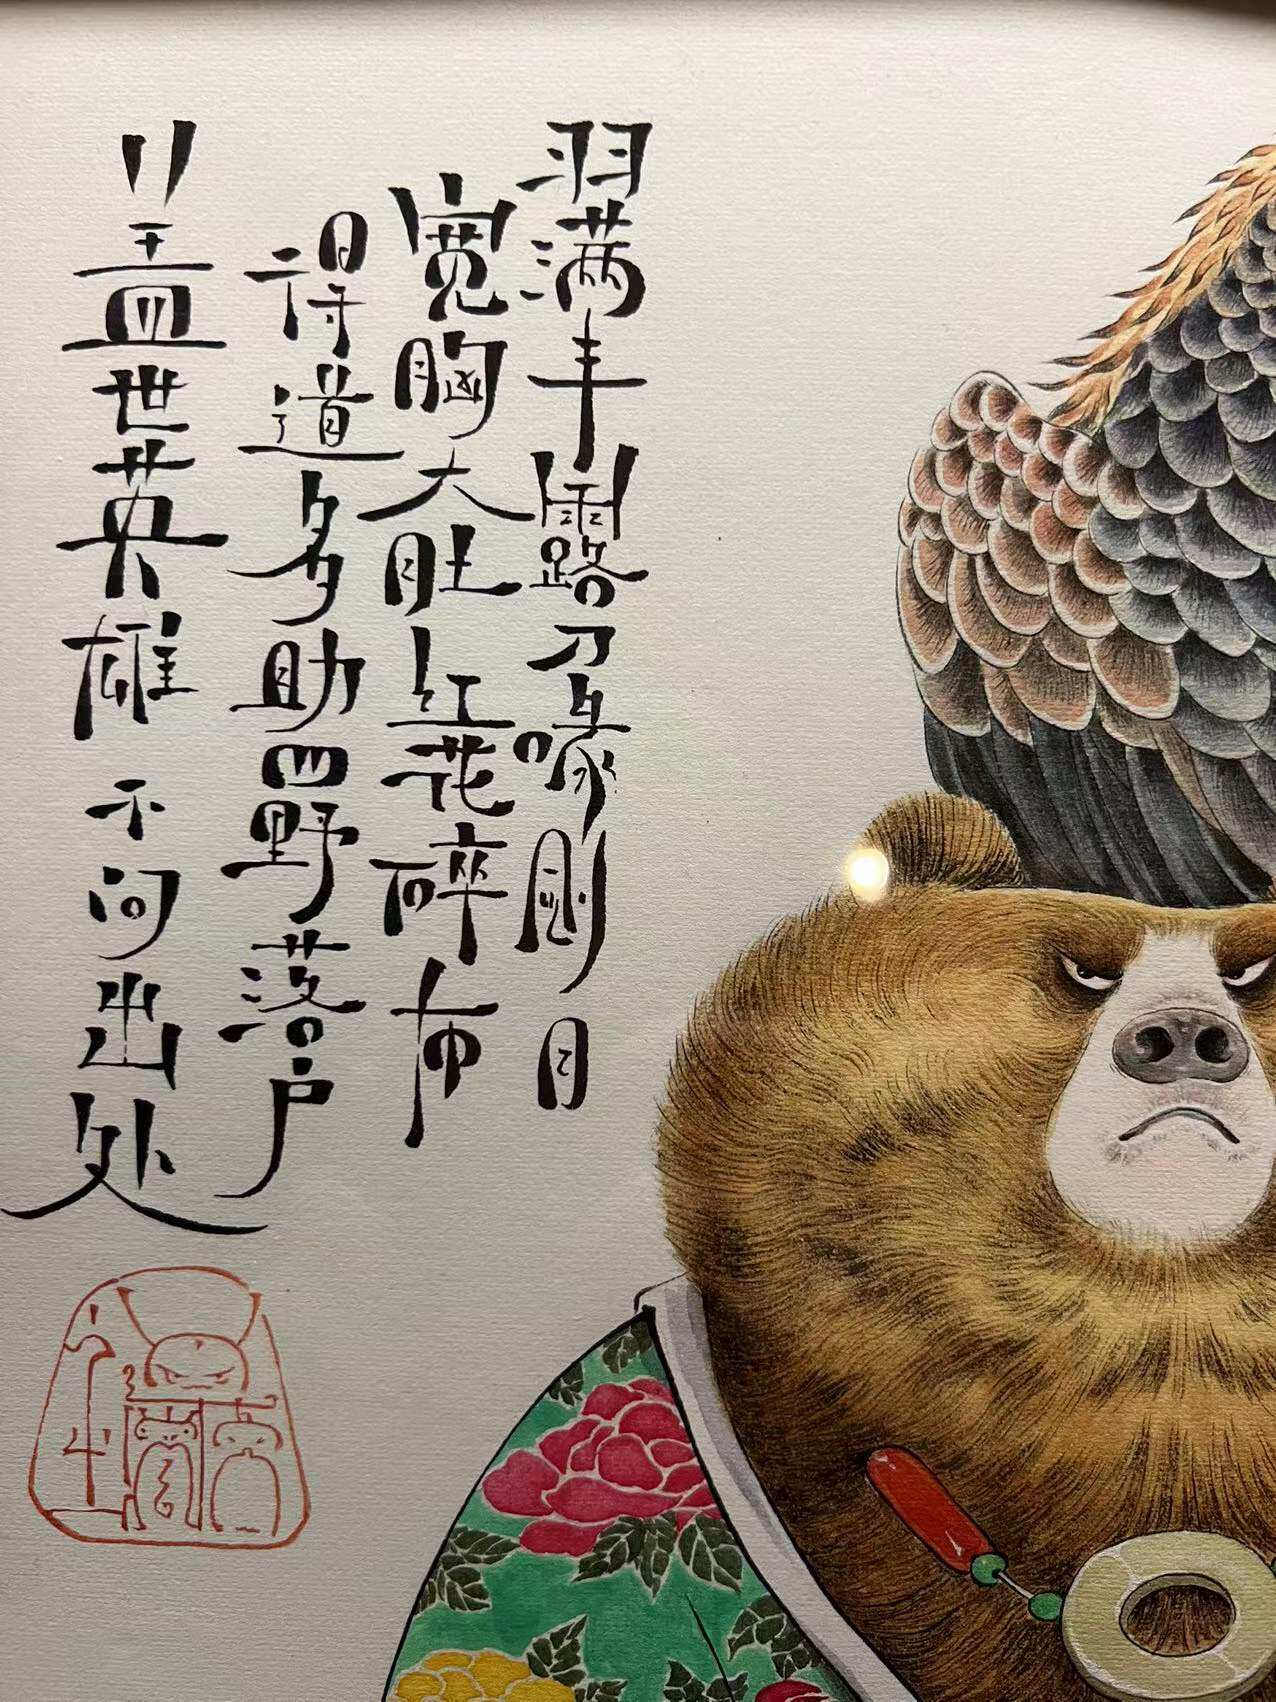 羽满丰露刀喙刚目
宽胸大肚红花碎布
得道多助四野落户
盖世英雄不问出处